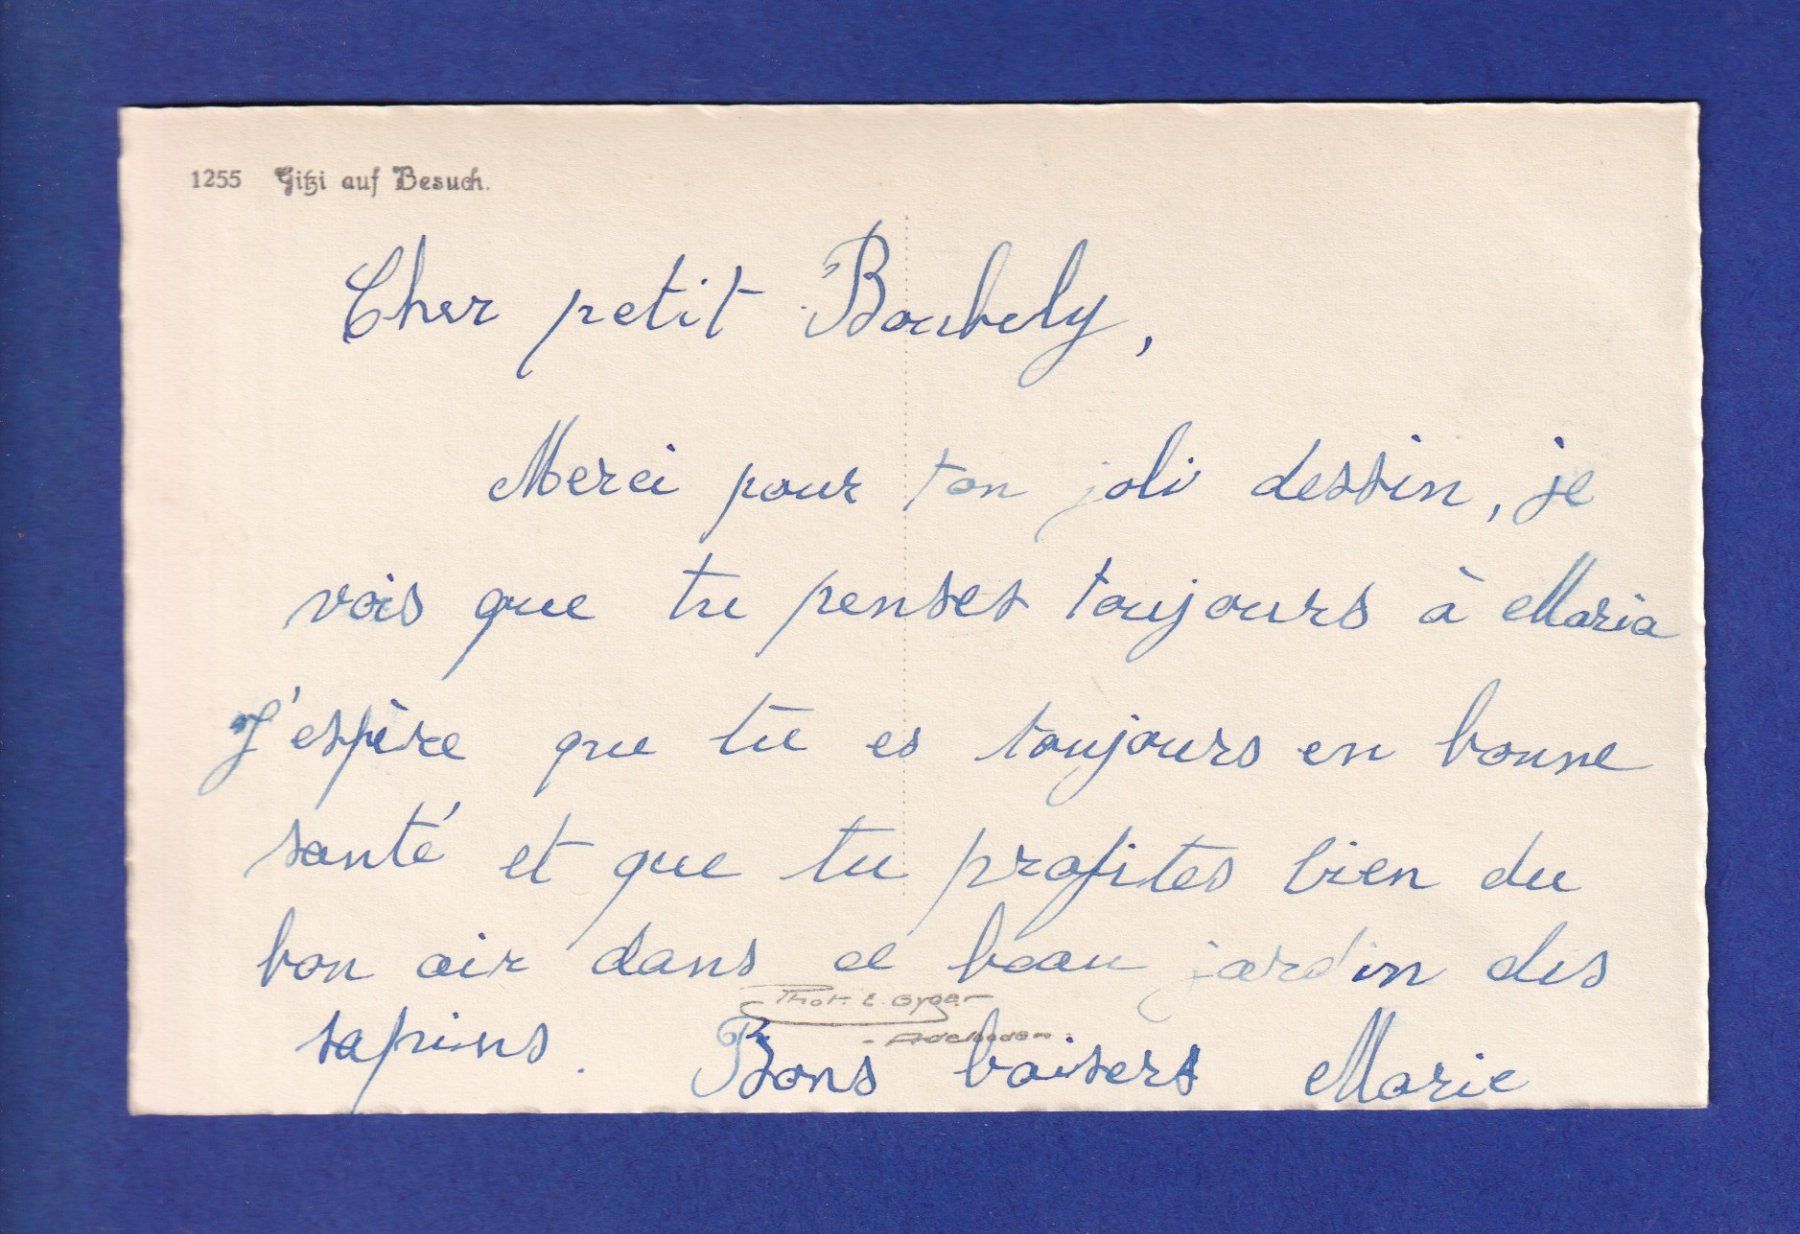 1255 Gitzi auf Besuch.
Cher petit Boubely,
Merci pour ton joli dessin, je
vois que tu penses toujours à Maria
J'espère que tu es toujours en bonne
santé et que tu profites bien du
bon air dans ce beau jardin des
sapins. Bons baisers Marie
Phot. E. Gyger
- Adelboden -